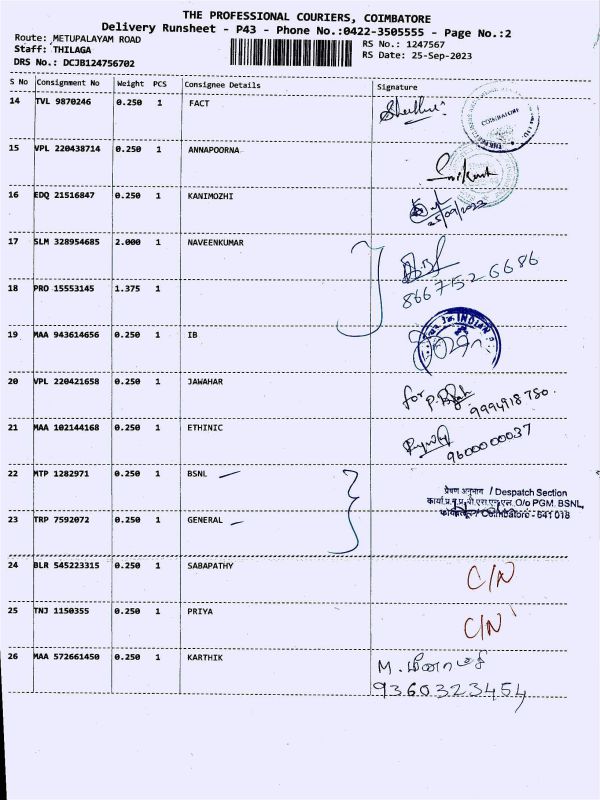 THE PROFESSIONAL COURIERS, COIMBATORE
Delivery Runsheet - P43 - Phone No.:0422-3505555 - Page No.:2
Route: METUPALAYAM ROAD
Staff: THILAGA
DRS No.: DCJB124756702
RS No.: 1247567
RS Date: 25-Sep-2023
S No Consignment No Weight PCS Consignee Details Signature
14 TVL 9870246 0.250 1 FACT
COIMBATORE
15 VPL 220438714 0.250 1 ANNAPOORNA
Srikanth
16 EDQ 21516847 0.250 1 KANIMOZHI
25/09/2023
17 SLM 328954685 2.000 1 NAVEENKUMAR
8667152 6686
18 PRO 15553145 1.375 1
19 MAA 943614656 0.250 1 IB
INDIAN
20 VPL 220421658 0.250 1 JAWAHAR
for
9994918 780.
21 MAA 102144168 0.250 1 ETHINIC
9600000037
22 MTP 1282971 0.250 1 BSNL
प्रेषण अनुभाग / Despatch Section
O/o PGM. BSNL,
23 TRP 7592072 0.250 1 GENERAL
Coimbatore - 641 018
24 BLR 545223315 0.250 1 SABAPATHY
C/N
25 TNJ 1150355 0.250 1 PRIYA
C/N
26 MAA 572661450 0.250 1 KARTHIK
M. மீனாமதி
9360323454